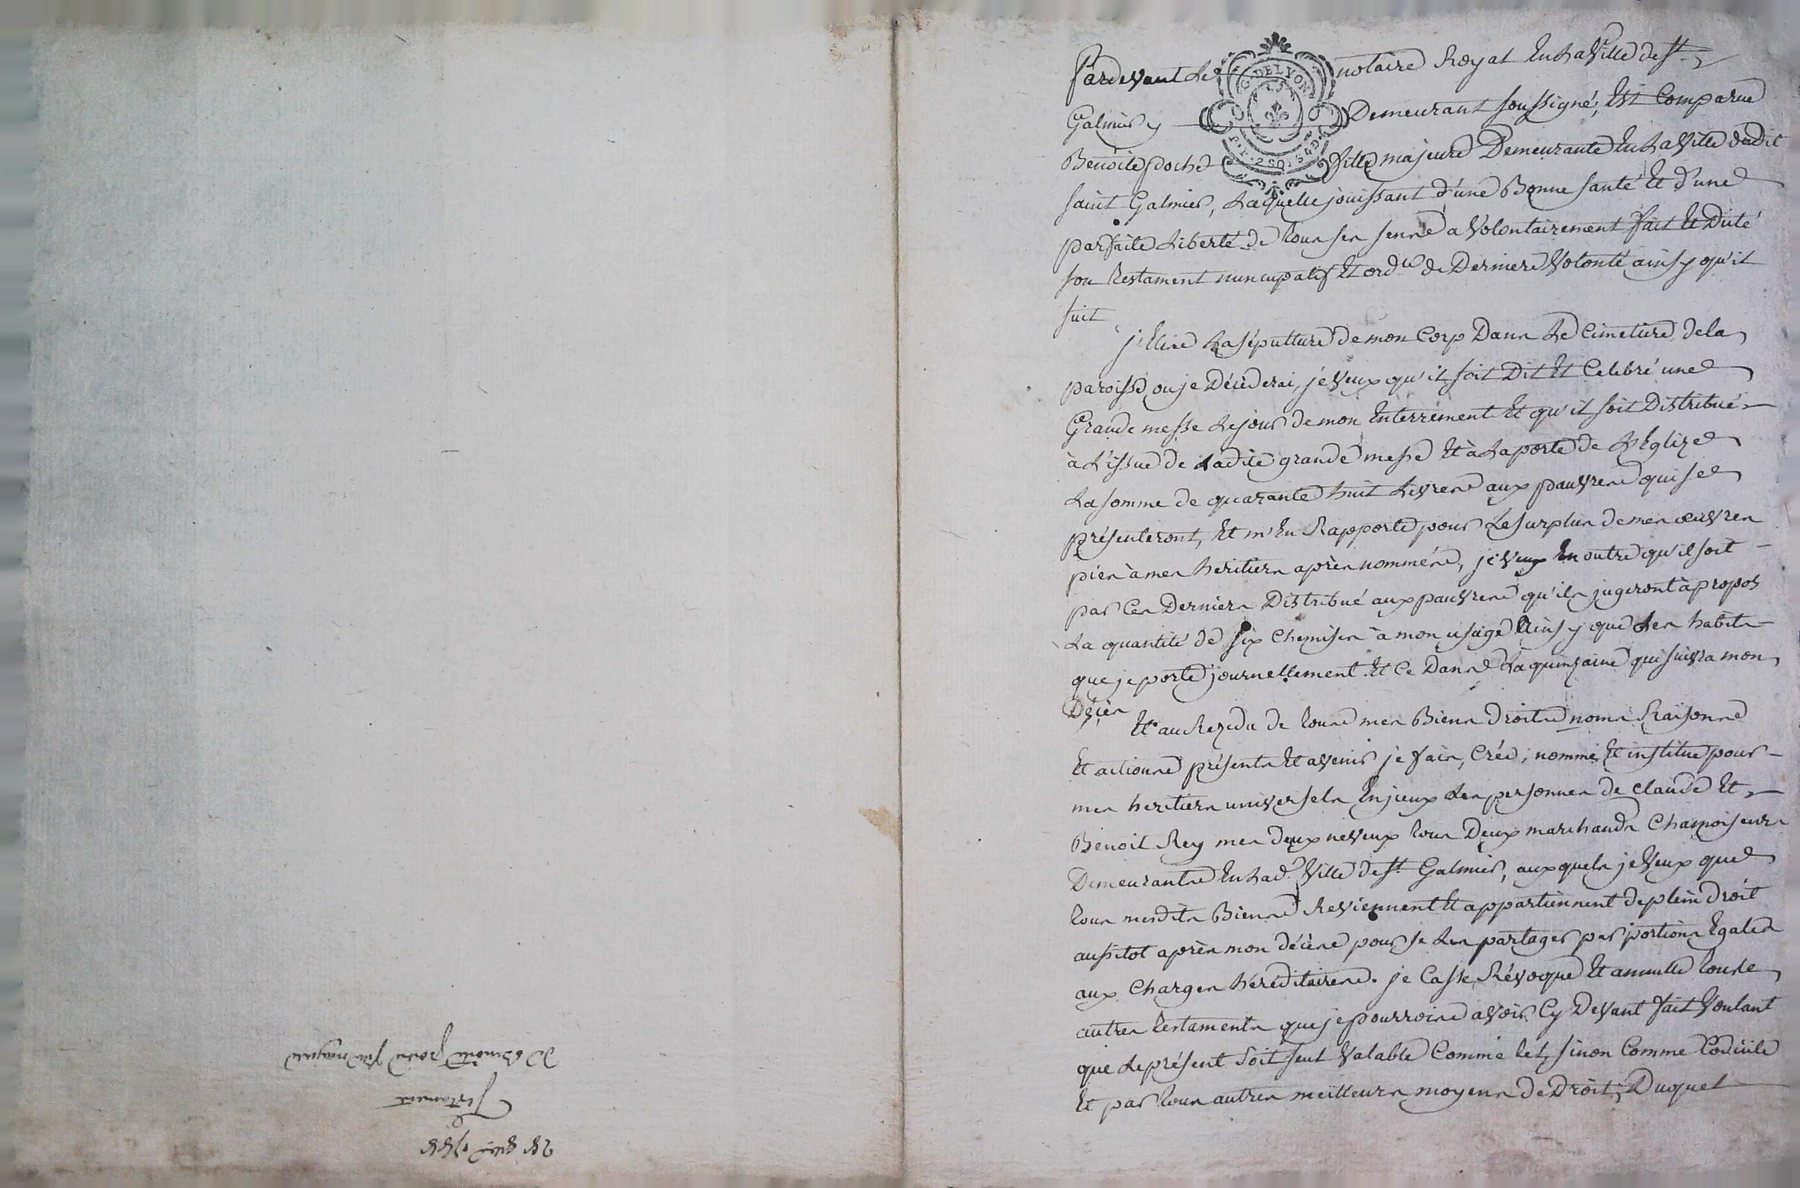 Pardevant Le notaire Royal En La Ville de St.
Galmier y Demeurant soussigné, Est Comparue
Benoite poche fille majeure Demeurante En La Ville dudit
saint Galmier, Laquelle jouissant d'une Bonne santé Et d'une
parfaite Liberté de tous ses sens a Volontairement fait Et Dicté
son testament nuncupatif Et ord.ce de Derniere Volonté ainsy qu'il
suit
j'Elire La sépulture de mon Corp Dans Le Cimetiere de la
paroisse ou je Décéderai, je Veux qu'il soit Dit Et Celebré une
Grande messe Le jour de mon Enterrement Et qu'il soit Distribué
à L'issue de Ladite grande messe Et à La porte de L'Eglize
La somme de quarante huit Livres aux pauvres qui se
présenteront, Et m'En Rapporte pour Le surplus de mes œuvres
pies à mes heritiers après nommés, je Veux En outre qu'il soit
par Ces Derniers Distribué aux pauvres qu'ils jugeront à propos
La quantité de six Chemises à mon usage Ainsy que Les habits
que je porte journellement Et Ce Dans La quinzaine qui suivra mon
Décès
Et au Rezidu de tous mes Biens Droits noms Raisons
Et actions présents Et avenir je fais, Créé, nomme Et institue pour
mes heritiers universels Enjeux Les personnes de Claude Et
Benoit Rey mes deux neveux tous Deux marchands Chamoiseurs
Demeurants En Lad. Ville de St. Galmier, auxquels je Veux que
tous mesdits Biens Reviennent Et appartiennent de plein Droit
aussitot après mon décès pour se Les partager par portions Egales
aux Charges héréditaires. je Casse, Révoque Et annulle tous Les
autres testaments que je pourrois avoir Cy Devant fait Voulant
que Le présent soit seul Valable Comme tel, sinon Comme Codicile
Et par tous autres meilleurs moyens de Droit, Duquel
Testament
G. DELYON